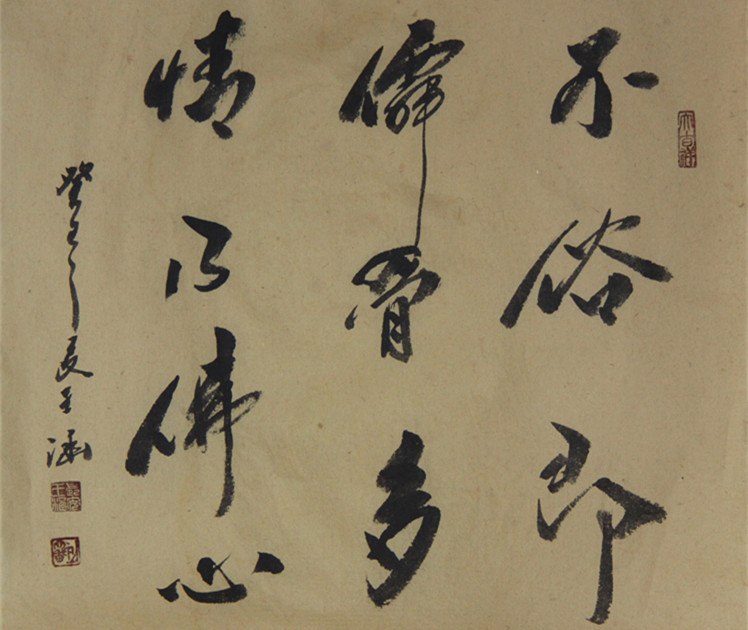 不俗即
僊骨多
情乃佛心
癸巳之夏王涵